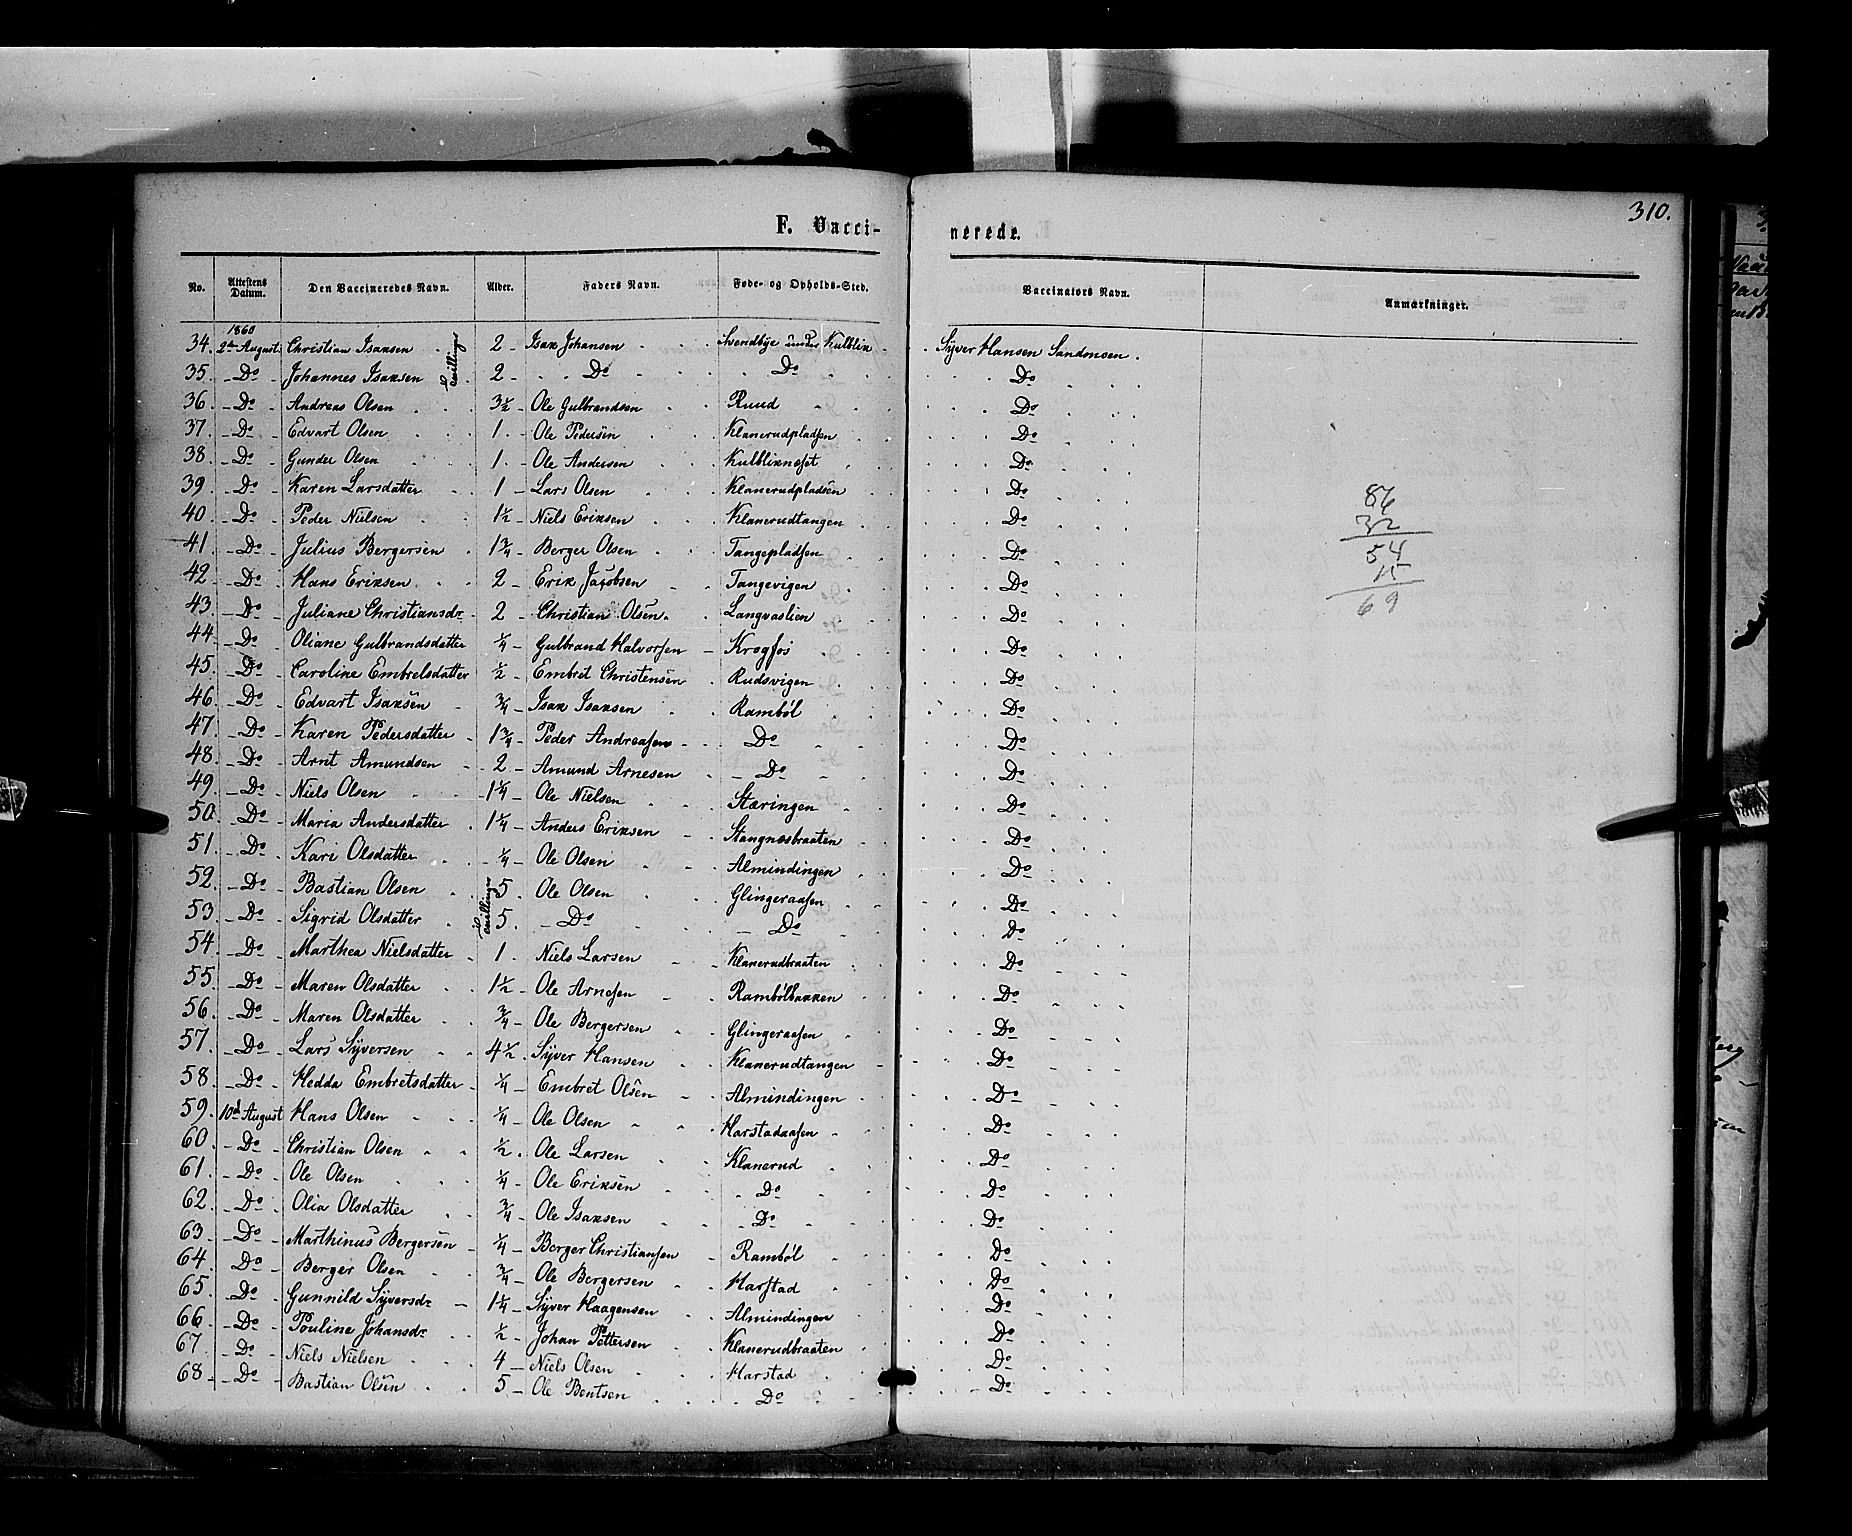 310.
F. Vaccinerede.
No. Attestens Datum. Den Vaccineredes Navn. Alder. Faders Navn. Føde- og Opholds-Sted. Vaccinators Navn. Anmærkninger.
1860
34. 2den August Christian Isaksen Tvillinger 2 - Isak Johansen Svendbye under Kulblik Syver Hansen Sandmoen.
35. Do Johannes Isaksen 2 - Do Do Do
36. Do Andreas Olsen 3½ - Ole Gulbrandsen Ruud Do
37. Do Edvart Olsen 1. Ole Pedersen Klanerudpladsen Do
38. Do Gunder Olsen 1. Ole Andersen Kulbliknæset Do
39. Do Karen Larsdatter 1 - Lars Olsen Klanerudpladsen Do
40. Do Peder Nielsen 1½ - Niels Eriksen Klanerudtangen Do
41. Do Julius Bergersen 1¾ - Berger Olsen Tangepladsen Do
42. Do Hans Eriksen 2 - Erik Jacobsen Tangevigen Do
43. Do Juliane Christiansdr 2 Christian Olsen. Langvaslien Do
44. Do Oliane Gulbrandsdatter ¼ - Gulbrand Halvorsen Krogfos Do
45. Do Caroline Embretsdatter ½ - Embret Christensen Rudsvigen Do
46. Do Edvart Isaksen ¾ - Isak Isaksen Rambøl Do
47. Do Karen Pedersdatter 1¾ - Peder Andreasen Do Do
48. Do Arnt Amundsen 2 - Amund Arnesen Do Do
49. Do Niels Olsen 1¼ - Ole Nielsen Stæringen Do
50. Do Maria Andersdatter 1¼ - Anders Eriksen Stangnæsbraaten Do
51. Do Kari Olsdatter ¼ - Ole Olsen Almindingen Do
52. Do Bastian Olsen Tvillinger 5. Ole Olsen Glingeraasen Do
53. Do Sigrid Olsdatter 5. Do Do Do
54. Do Marthea Nielsdatter 1. Niels Larsen Klanerudbraaten Do
55. Do Maren Olsdatter 1½ - Ole Arnesen Rambølbakken Do
56. Do Maren Olsdatter ¾ - Ole Bergersen Glingeraasen Do
57. Do Lars Syversen 4½. Syver Hansen Klanerudtangen Do
58. Do Hedda Embretsdatter ¼ - Embret Olsen Almindingen Do
59. 10d August Hans Olsen ¼ - Ole Olsen Harstadaasen Do
60. Do Christian Olsen ½. Ole Larsen Klanerud Do
61. Do Ole Olsen ¼ - Ole Eriksen Do Do
62. Do Olia Olsdatter ¾ - Ole Isaksen Do Do
63. Do Marthinus Bergersen ¼ - Berger Christiansen Rambøl Do
64. Do Berger Olsen ¾ - Ole Bergersen Harstad Do
65. Do Gunnild Syversdr 1¼ - Syver Haagensen Almindingen Do
66. Do Pouline Johansdr ½ - Johan Pettersen Klanerudbraaten Do
67. Do Niels Nielsen 4 - Niels Olsen Harstad Do
68. Do Bastian Olsen 5 - Ole Bentsen Do Do
86
32
54
15
69